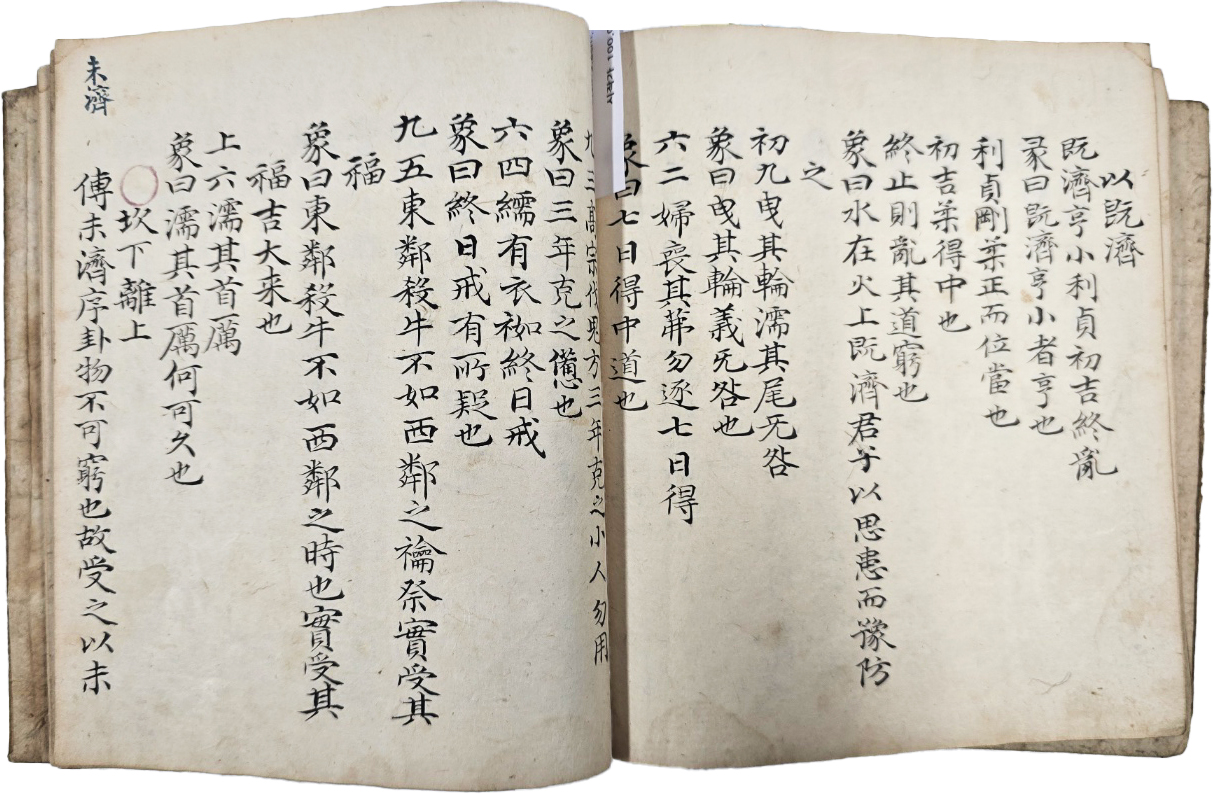 以既濟
既濟亨小利貞初吉終亂
彖曰既濟亨小者亨也
利貞剛柔正而位當也
初吉柔得中也
終止則亂其道窮也
象曰水在火上既濟君子以思患而豫防
之
初九曳其輪濡其尾无咎
象曰曳其輪義无咎也
六二婦喪其茀勿逐七日得
象曰七日得中道也
九三高宗伐鬼方三年克之小人勿用
象曰三年克之憊也
六四繻有衣袽終日戒
象曰終日戒有所疑也
九五東鄰殺牛不如西鄰之禴祭實受其
福
象曰東鄰殺牛不如西鄰之時也實受其
福吉大来也
上六濡其首厲
象曰濡其首厲何可久也
坎下離上
傳未濟序卦物不可窮也故受之以未
未濟